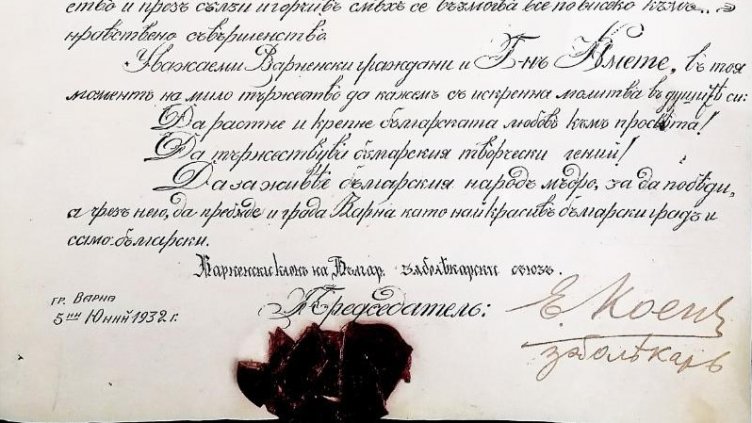 ство и презъ сълзи и горчивъ смѣхъ се възмогва все по високо къмъ...
нравствено съвършенство.
Уважаеми Варненски граждани и Г-нъ Кмете, въ тоя
моментъ на мило тържество да кажемъ съ искренна молитва въ душитѣ си:
Да расте и крепне българската любовь къмъ просвѣта!
Да тържествува българския творчески гений!
Да заживѣе българския народъ мѫдро, за да победи,
а чрезъ него, да пребѫде и града Варна като най красивъ български градъ и
само български.
Варненски клонъ на Българ. зъболѣкарски съюзъ.
гр. Варна
5 ий Юний 1932 г.
Председатель:
Е. Коенъ
зъболѣкарь